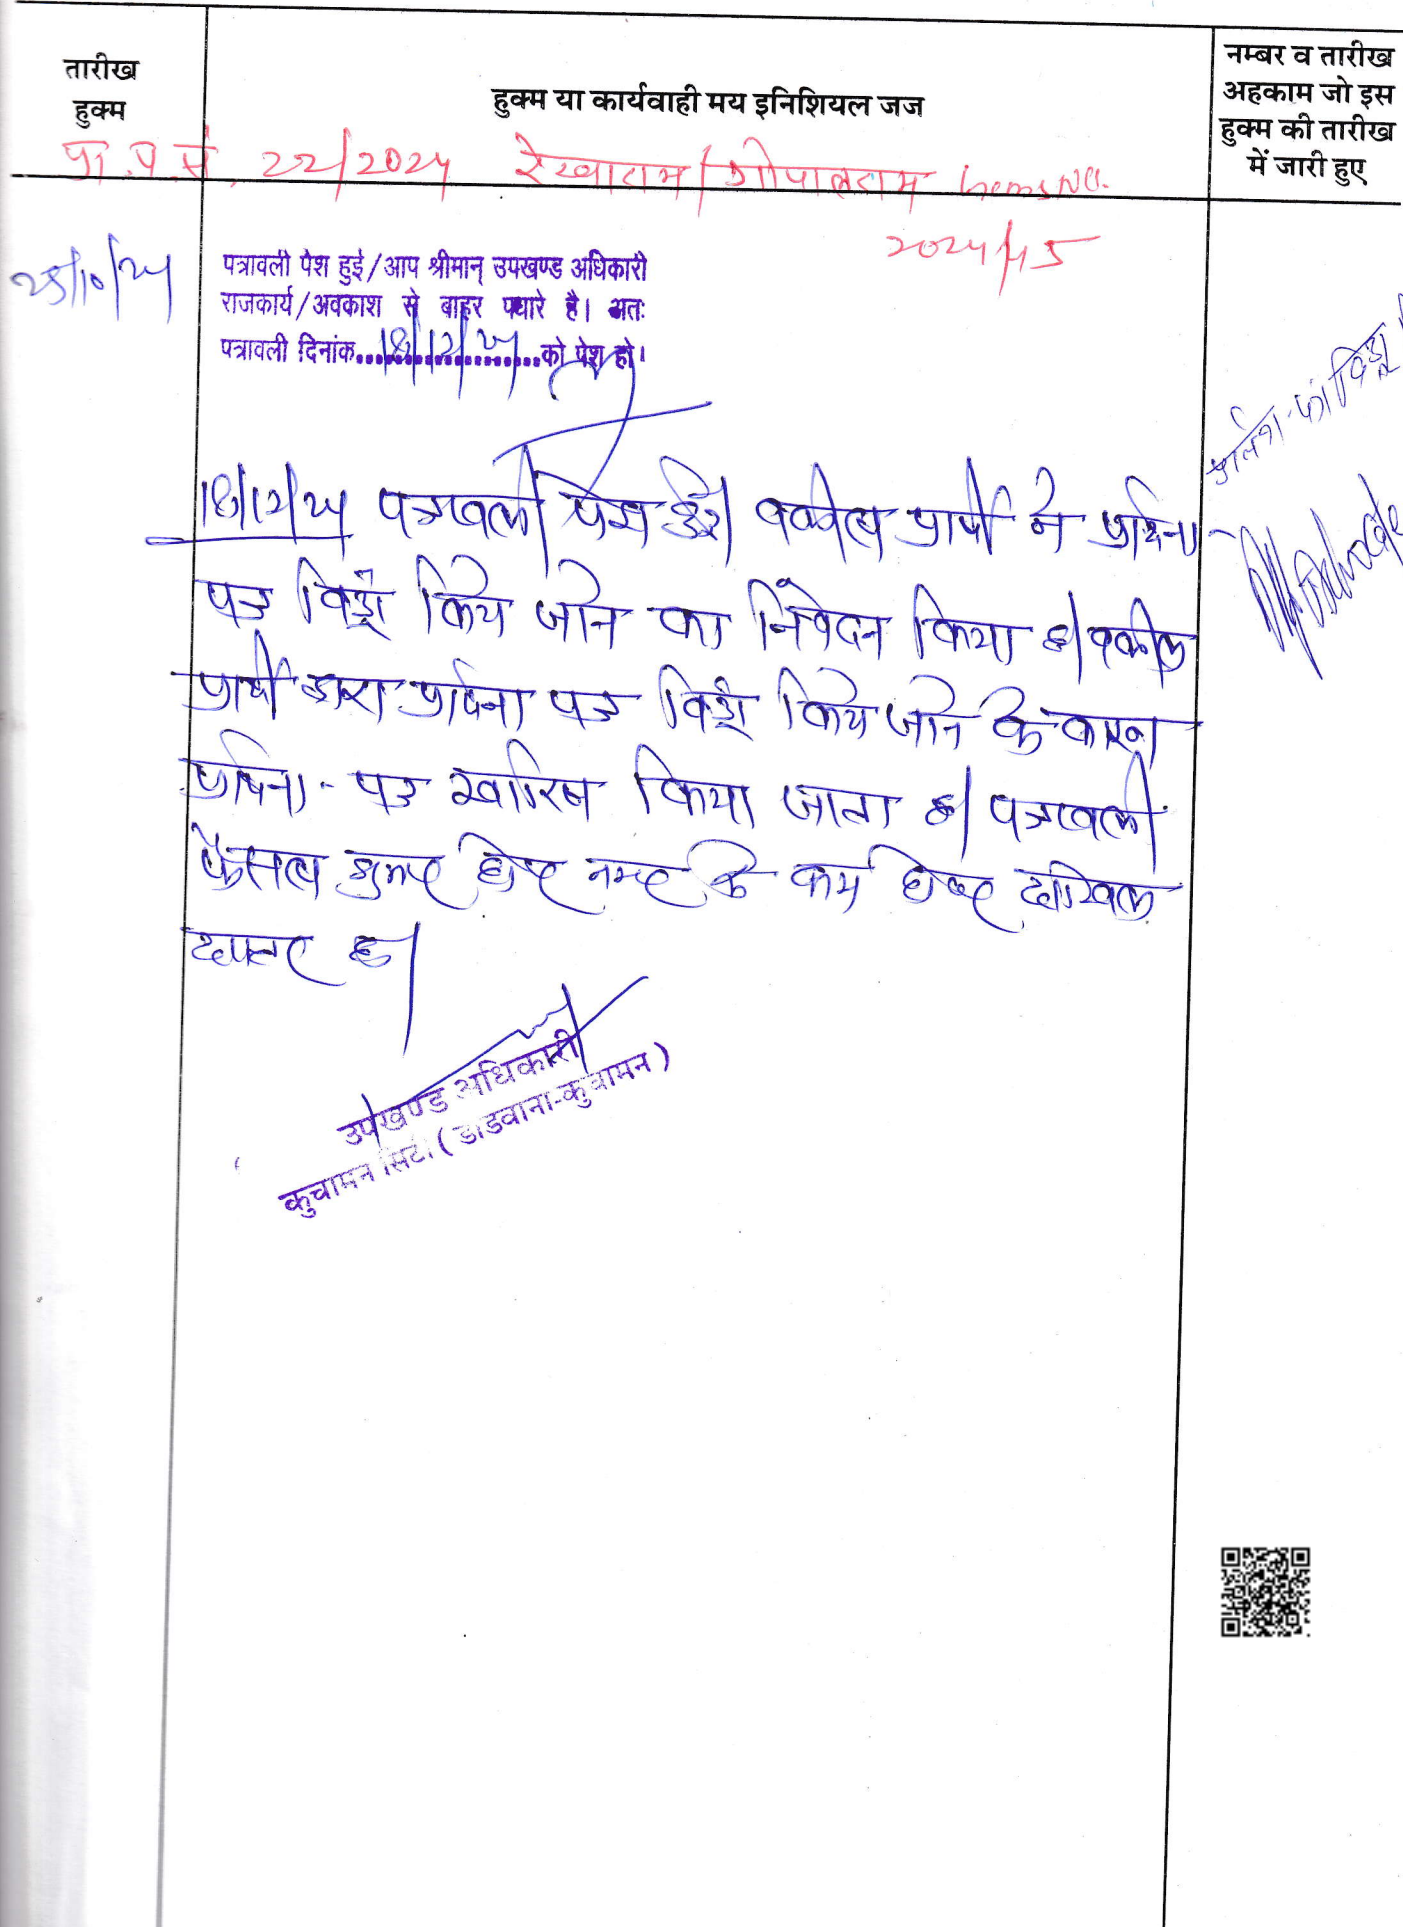 तारीख हुक्म
हुक्म या कार्यवाही मय इनिशियल जज
नम्बर व तारीख
अहकाम जो इस
हुक्म की तारीख
में जारी हुए
प्रा.प.सं. 22/2024 रेखाराम/गोपालराम
2024/45
पत्रावली पेश हुई/आप श्रीमान् उपखण्ड अधिकारी
राजकार्य/अवकाश से बाहर पधारे है। अतः
पत्रावली दिनांक 18/12/24 को पेश हो।
18/12/24 पत्रावली पेश हुई। वकील प्रार्थी ने प्रार्थना
पत्र विड्रो किये जाने का निवेदन किया है। वकील
प्रार्थी द्वारा प्रार्थना पत्र विड्रो किये जाने के कारण
प्रार्थना-पत्र खारिज किया जाता है। पत्रावली
फैसल शुमार होकर नम्बर से कम होकर दाखिल
दफ्तर हो।
उपखण्ड अधिकारी
कुचामन सिटी (डीडवाना-कुचामन)